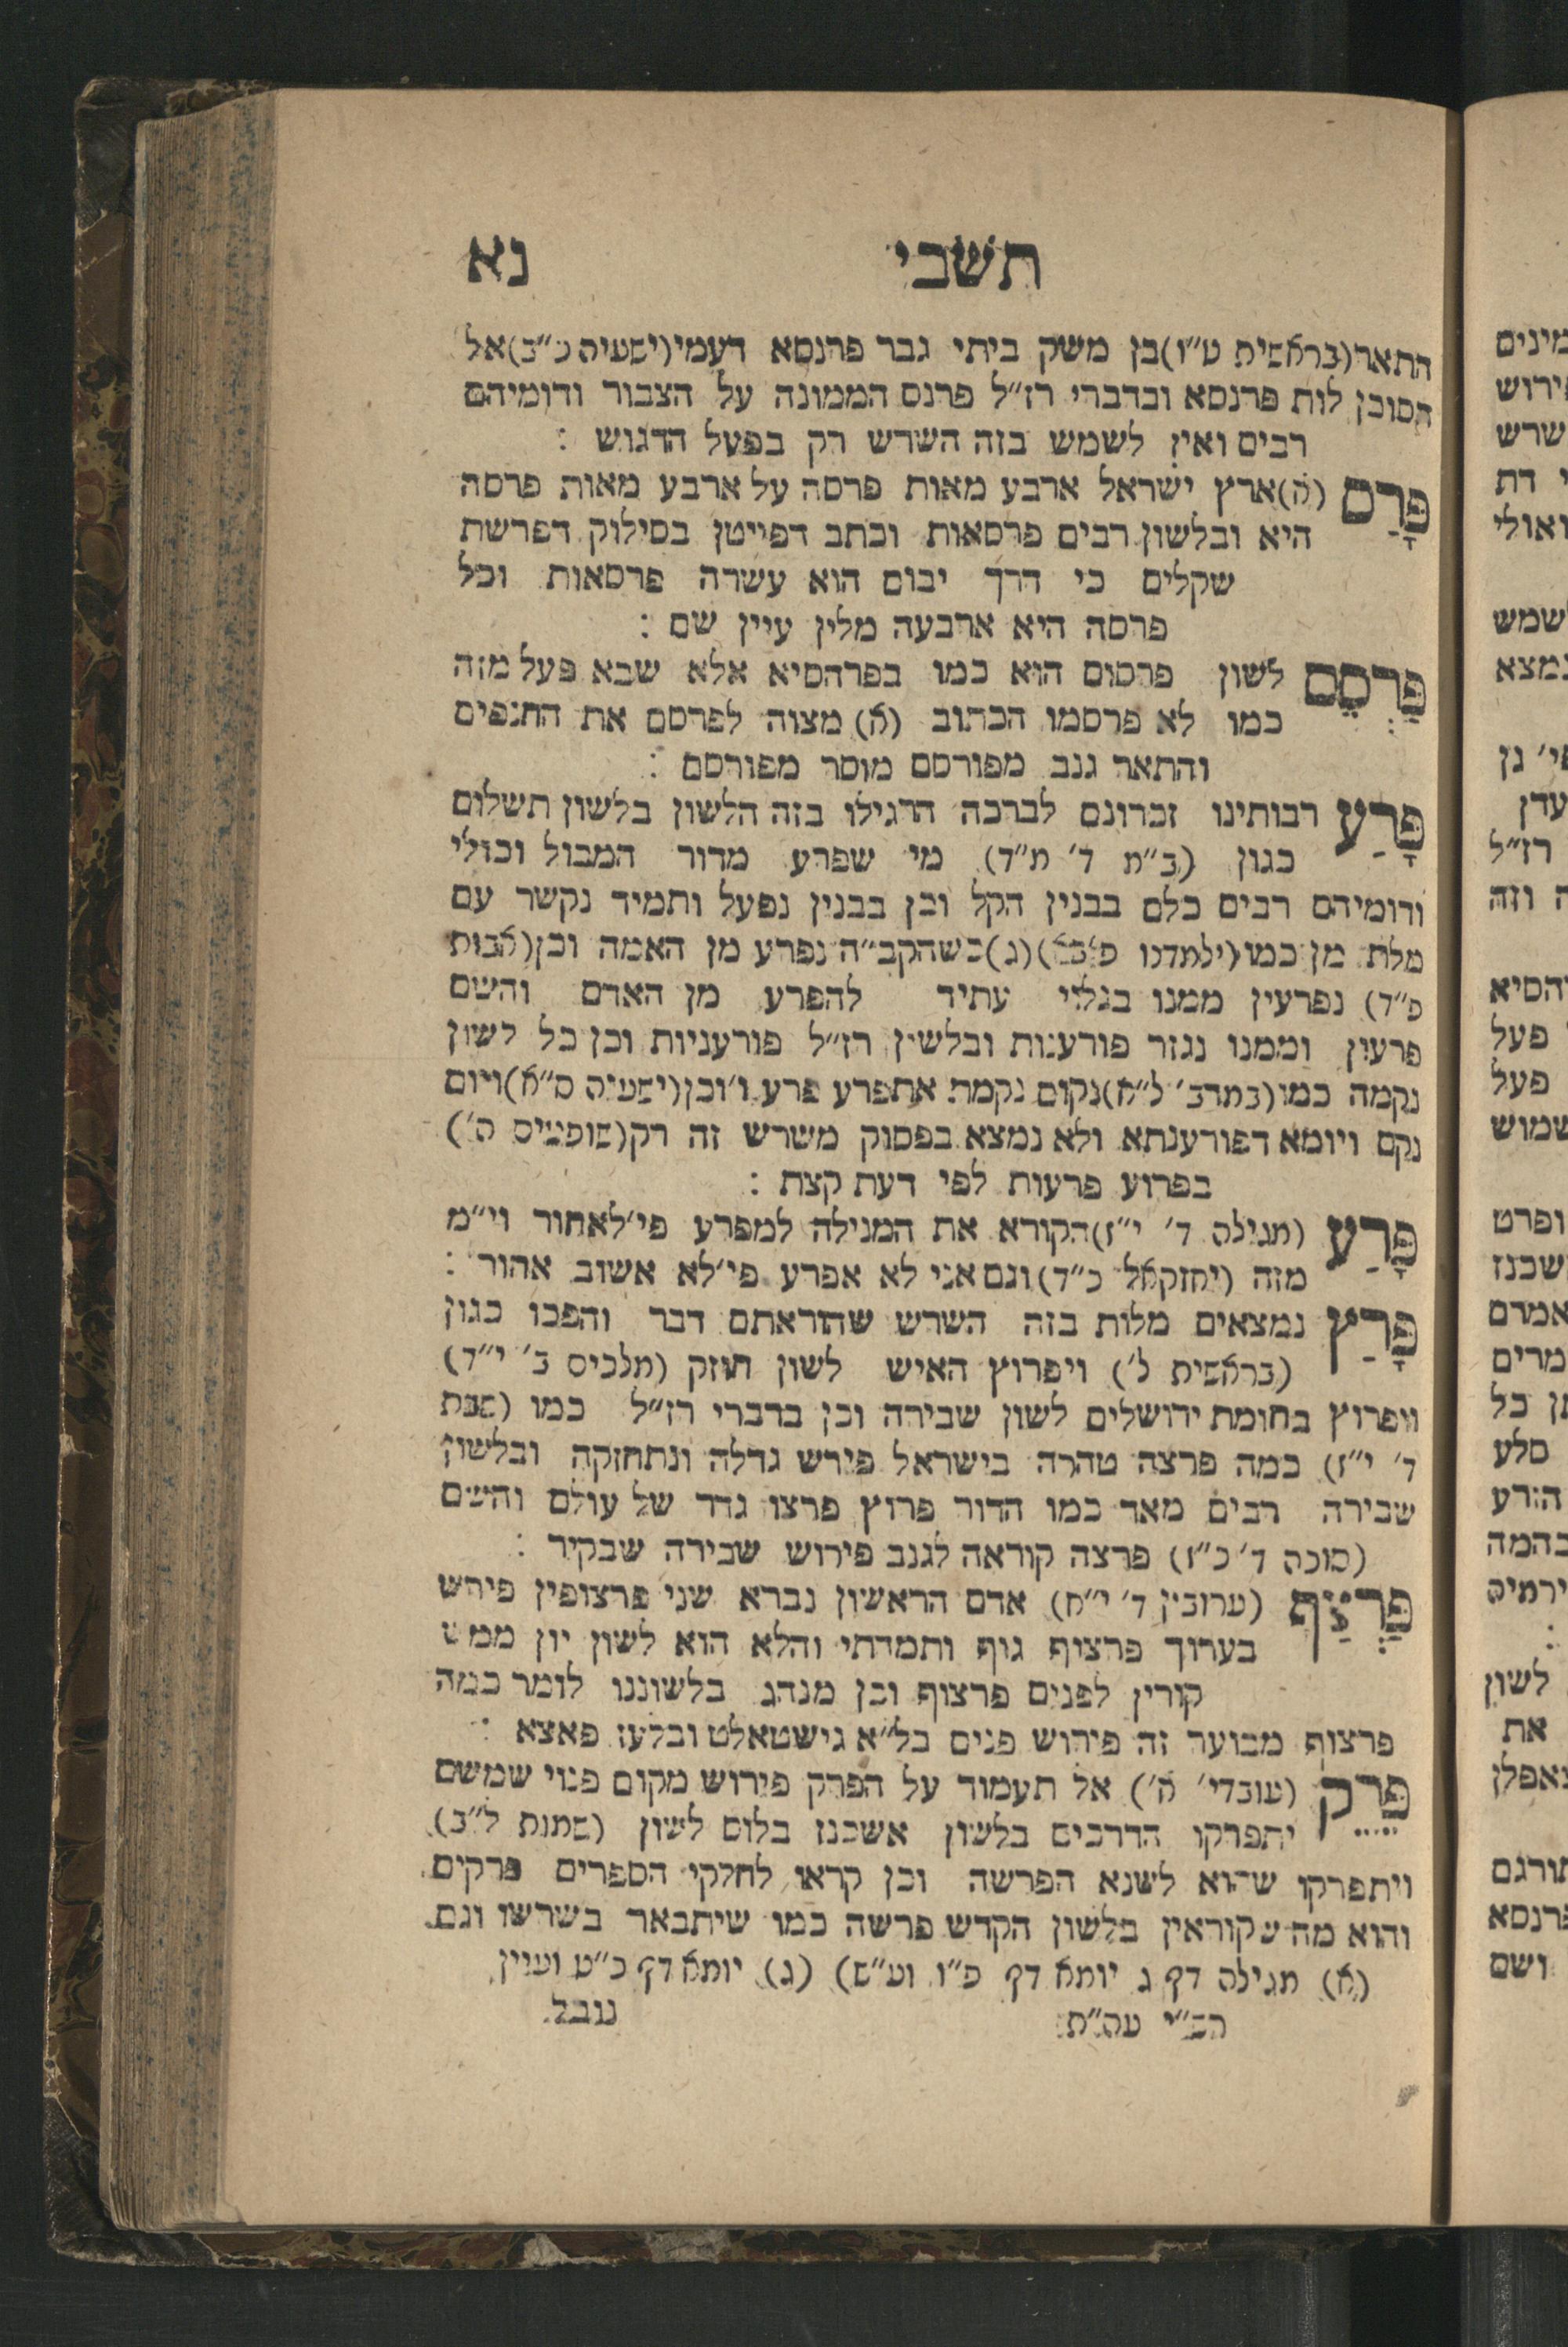 תשבי נא
התאר (בראשית ט"ו) בן משק ביתי גבר פרנסא דעמי (ישעיה כ"ב) אל
הסוכן לות פרנסא ובדברי רז"ל פרנס הממונה על הצבור ודומיהם
רבים ואין לשמש בזה השרש רק בפעל הדגוש :
פָּרַס (ה) ארץ ישראל ארבע מאות פרסה על ארבע מאות פרסה
היא ובלשון רבים פרסאות וכתב דפייטן בסילוק דפרשת
שקלים כי דרך יבום הוא עשרה פרסאות וכל
פרסה היא ארבעה מלין עיין שם :
פַּרְסֵם לשון פרסום הוא כמו בפרהסיא אלא שבא פעל מזה
כמו לא פרסמו הכתוב (א) מצוה לפרסם את החנפים
והתאר גנב מפורסם מוסר מפורסם :
פָּרַע רבותינו זכרונם לברכה הרגילו בזה הלשון בלשון תשלום
כגון (ב"מ ד' מ"ד) מי שפרע מדור המבול וכולי
ודומיהם רבים כלם בבנין הקל וכן בבנין נפעל ותמיד נקשר עם
מלת מן כמו (ילמדנו) (ג) כשהקב"ה נפרע מן האמה וכן (אבות
פ"ד) נפרעין ממנו בגלוי עתיד להפרע מן האדם והשם
פרעון וממנו נגזר פורענות ובלשון רז"ל פורעניות וכן כל לשון
נקמה כמו (במדב' ל"א) נקום נקמת אתפרע פרע ו' וכן (ישעיה ס"א) ויום
נקם ויומא דפורענתא ולא נמצא בפסוק משרש זה רק (שופטים ה')
בפרוע פרעות לפי דעת קצת :
פָּרַע (מגילה ד' י"ז) הקורא את המגילה למפרע פי' לאחור וי"מ
מזה (יחזקאל כ"ד) וגם אני לא אפרע פי' לא אשוב אהור :
פָּרַץ נמצאים מלות בזה השרש שהוראתם דבר והפכו כגון
(בראשית ל') ויפרוץ האיש לשון חוזק (מלכים ב' י"ד)
ויפרוץ בחומת ירושלים לשון שבירה וכן בדברי רז"ל כמו (שבת
ד' י"ז) כמה פרצה טהרה בישראל פירש גדלה ונתחזקה ובלשון
שבירה רבים מאד כמו הדור פרוץ פרצו גדר של עולם והשם
(סוכה ד' כ"ו) פרצה קוראה לגנב פירוש שבירה שבקיר :
פַּרְצַף (ערובין ד' י"ח) אדם הראשון נברא שני פרצופין פירש
בערוך פרצוף גוף ותמהתי והלא הוא לשון יון ממש
קורין לפנים פרצוף וכן מנהג בלשוננו לומר כמה
פרצוף מכוער זה פירוש פנים בל"א גישטאלט ובלעז פאצא :
פרק (עובדי' א') אל תעמוד על הפרק פירוש מקום פנוי שמשם
יתפרקו הדרכים בלשון אשכנז בלוס לשון (שמות ל"ב)
ויתפרקו שהוא לשנא הפרשה וכן קראו לחלקי הספרים פרקים
והוא מה שקוראין בלשון הקדש פרשה כמו שיתבאר בשרשו וגם
(א) מגילה דף ג יומא דף פ"ו וע"ש) (ג) יומא דף כ"ט ועיין
עה"ת